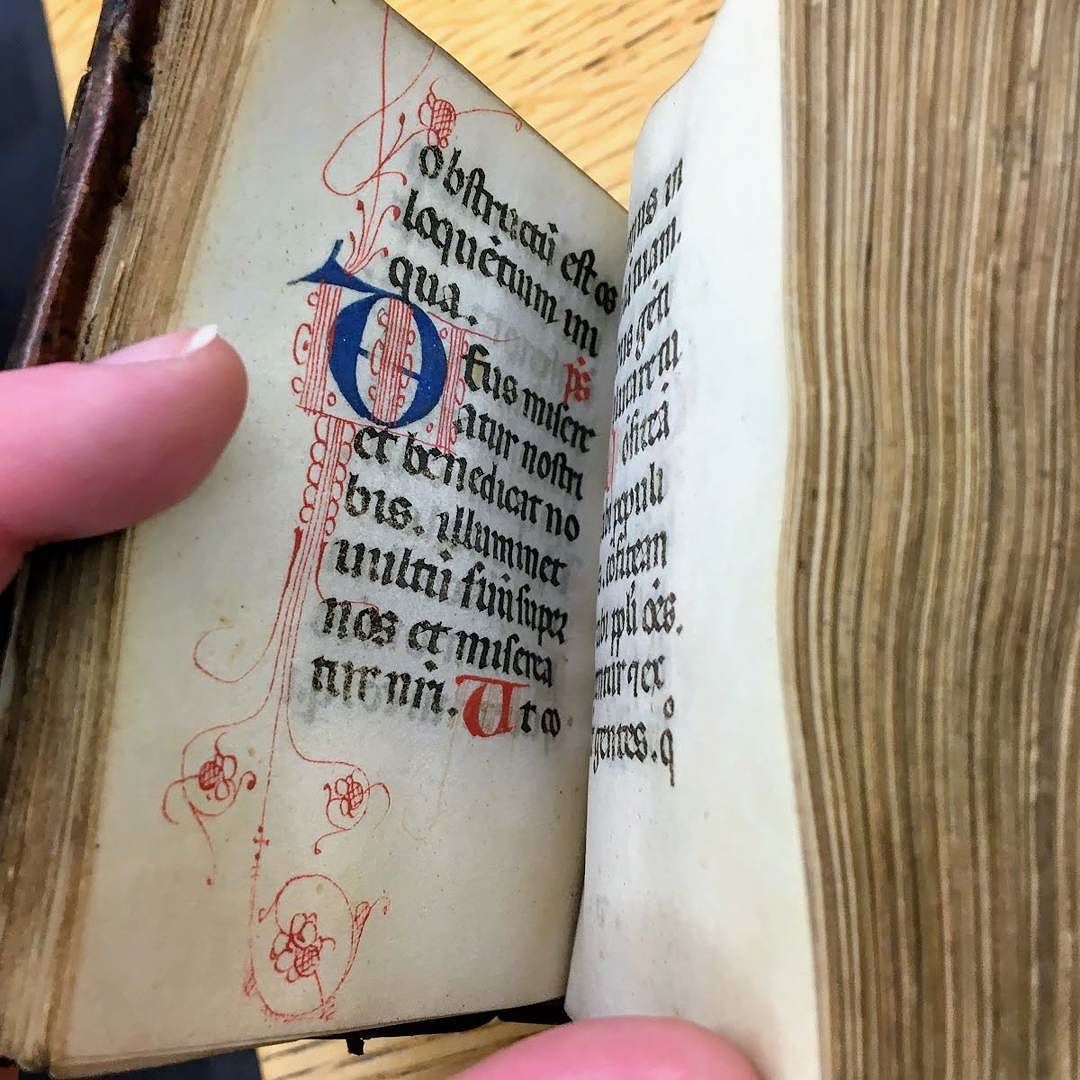 obstructū est os
loquētium ini
qua. ps̄
Deus misere
atur nostri
et benedicat no
bis. illuminet
uultū suū super
nos et miserea
tur nr̄i. Ut co
in
uiam.
gen
ofiteā
populi
cōfitean
ppli oēs.
⁊ ex
gentes. q̊